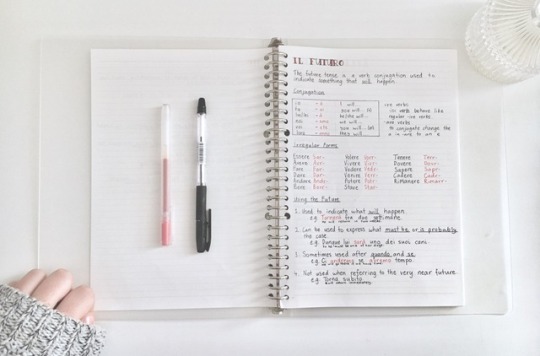 IL FUTURO
The future tense is a verb conjugation used to
indicate something that will happen.
Conjugation
io - ò I will... -ire verbs
tu - ai you will... -ire verbs behave like
lui/lei - à he/she will... regular -ere verbs.
noi - emo we will... -are verbs
voi - ete you will... to conjugate change the
loro - anno they will... a to an e
Irregular Forms
Essere Sar- Volere Vorr- Tenere Terr-
Avere Avr- Vivere Vivr- Dovere Dovr-
Fare Far- Vedere Vedr- Sapere Sapr-
Dare Dar- Venire Verr- Cadere Cadr-
Andare Andr- Potere Potr- Rimanere Rimarr-
Bere Berr- Stare Star-
Using the Future
1. Used to indicate what will happen.
e.g. Tornerò fra due settimane.
2. Can be used to express what must be or is probably
the case.
e.g. Dunque lei sarà uno dei suoi cani.
3. Sometimes used after quando and se.
e.g. Ci andremo se avremo tempo.
4. Not used when referring to the very near future.
e.g. Torno subito.